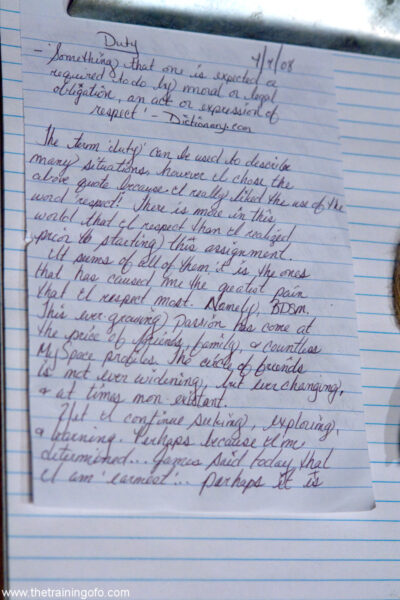 Duty 4/9/08
- 'Something that one is expected or
required to do by moral or legal
obligation, an act or expression of
respect' - Dictionary.com
The term 'duty' can be used to describe
many situations, however I chose the
above quote because I really liked the use of the
word 'respect'! There is more in this
world that I respect than I realized
prior to starting this assignment.
It seems of all of them it is the ones
that has caused me the greatest pain
that I respect most. Namely, BDSM.
This ever-growing passion has come at
the price of friends, family, & countless
MySpace profiles. The circle of friends
is not ever widening, but ever changing,
& at times non existant.
Yet I continue seeking, exploring,
& learning. Perhaps because I'me
determined... James said today that
I am 'earnest'... perhaps it is
www.thetrainingofo.com